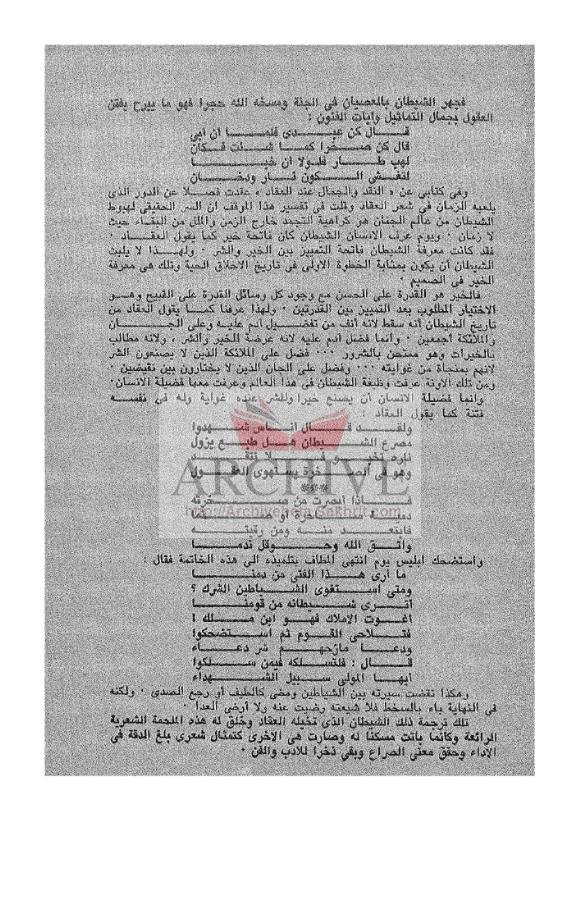 فجهر الشيطان بالعصيان في الجنة ومسخه الله حجرا فهو ما يبرح يفتن
العقول بجمال التماثيل وآيات الفنون :
قـــال كن عبـــدى فلمـــا ان أبى
قال كن صـــخرا كمـــا شـــئت فكان
لهب طـــار فلـولا أن خبـــا
لتغشى الـــكون نـــار ودخـــان
وفي كتابي عن « النقد والجمال عند العقاد » عقدت فصـلا عن الدور الذى
يلعبه الزمان في شعر العقاد وقلت في تفسير هذا الموقف ان السر الحقيقى لهبوط
الشيطان من عالم الجنان هو كراهية التجمد خارج الزمن والملل من البقـاء حيث
لا زمان . ويوم عرف الانسان الشيطان كان فاتحة خير كما يقول العقـاد .
فقد كانت معرفة الشيطان فاتحة التمييز بين الخير والشر . ولهـذا لا يلبث
الشيطان أن يكون بمثابة الخطوة الاولى في تاريخ الاخلاق الحية وتلك هى معرفة
الخير في الصميم
فالخير هو القدرة على الحسن مع وجود كل وسائل القدرة على القبيح وهـو
الاختيار المطلوب بعد التمييز بين القدرتين . ولهذا عرفنا كمـا يقول العقاد من
تاريخ الشيطان أنه سقط لانه أنف من تفضـيل آدم عليـه وعلى الجـــان
والملائكة أجمعين . وانما فضل آدم عليه لانه عرضة للخير والشر ، ولانه مطالب
بالخيرات وهو ممتحن بالشرور ... فضل على الملائكة الذين لا يصنعون الشر
لانهم بمنجاة من غوايته ... وفضل على الجان الذين لا يختارون بين نقيضين .
ومن تلك الآونة عرفت وظيفة الشيطان في هذا العالم وعرفت معها فضيلة الانسان.
وانما فضيلة الانسان أن يصنع خيرا وللشر عنده غواية وله في نفسـه
فتنة كما يقول العقاد :
ولقـــد قـــال انـــاس شـــهدوا
مصرع الشـــيطان هـــل طبـــع يزول
وهو في الصـــخرة يستهوى العقـــول
فـــاذا أبصرت من صـــخرته
دميـــة ســـاحرة أو
فابتعـــد منـــه ومن رقيتـــه
واتـــق الله وحـــوقل ندمـــا
واستضحك ابليس يوم انتهى المطاف بتلميذه الى هذه الخاتمة فقال :
ما أرى هـــذا الفتى من دمنـــا
ومتى اســـتغوى الشـــياطين الشرك ؟
أتـــرى شـــيطانه من قومنـــا
أغـــوت الاملاك فهـــو ابن ملـــك !
فتـــلاحى القـــوم ثم اســـتضحكوا
ودعـــا مازحهـــم شر دعـــاء
قـــال : فلتسلكه فيمن ســـلكوا
أيهـــا المولى ســـبيل الشـــهداء
وهكذا تقضت سيرته بين الشياطين ومضى كالطيف أو رجع الصدى . ولكنه
في النهاية باء بالسخط فلا شيعته رضيت عنه ولا أرضى العدا .
تلك ترجمة ذلك الشيطان الذى تخيله العقاد وخلق له هذه الملحمة الشعرية
الرائعة وكأنما باتت مسكنا له وصارت هى الاخرى كتمثال شعرى بلغ الدقة في
الاداء وحقق معنى الصراع وبقى ذخرا للأدب والفن .
ARCHIVE
http://Archivebeta.Sakhrit.com